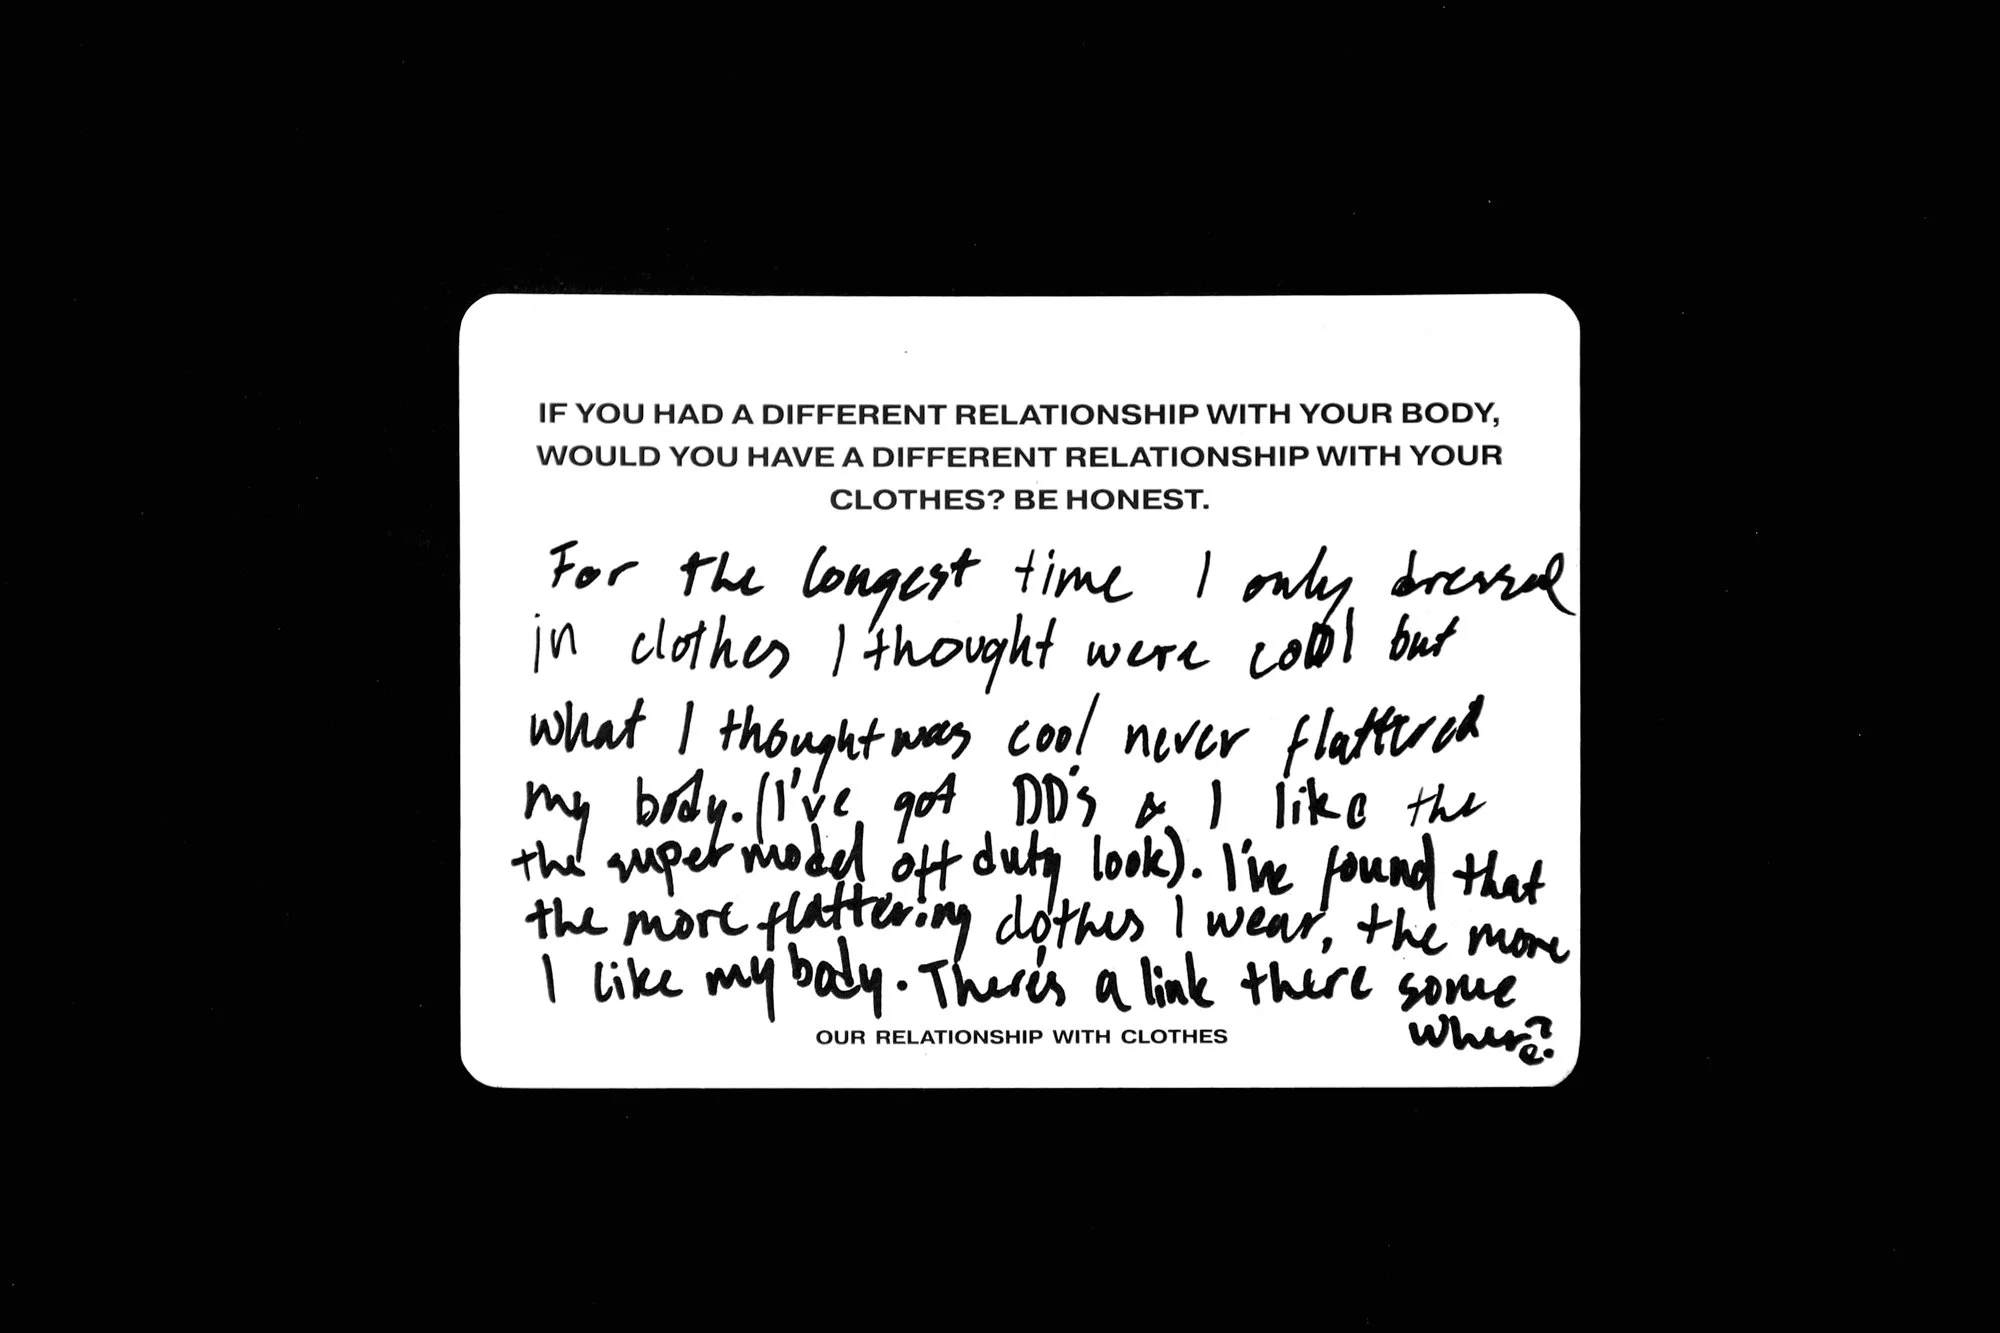 IF YOU HAD A DIFFERENT RELATIONSHIP WITH YOUR BODY,
WOULD YOU HAVE A DIFFERENT RELATIONSHIP WITH YOUR
CLOTHES? BE HONEST.
For the longest time I only dressed
in clothes I thought were cool but
what I thought was cool never flattered
my body. (I've got DD's & I like the
the supermodel off duty look). I've found that
the more flattering clothes I wear, the more
I like my body. There's a link there some
where?
OUR RELATIONSHIP WITH CLOTHES